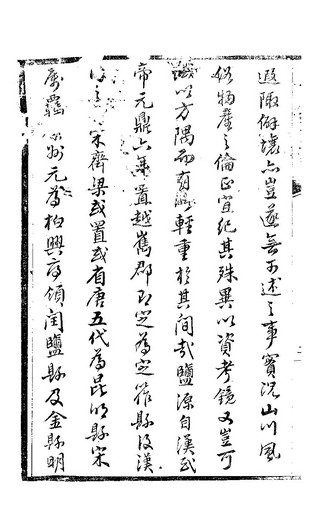 遐陬僻壤亦豈遂無可述之事實況山川風
俗物產之倫正宜紀其殊異以資考鏡又豈可
以方隅而有輕重於其間哉鹽源自漢武
帝元鼎六年置越嶲郡即定為定莋縣後漢
宋齊梁或置或省唐五代為昆明縣宋
屬 元為柏興府領閏鹽縣及金縣明